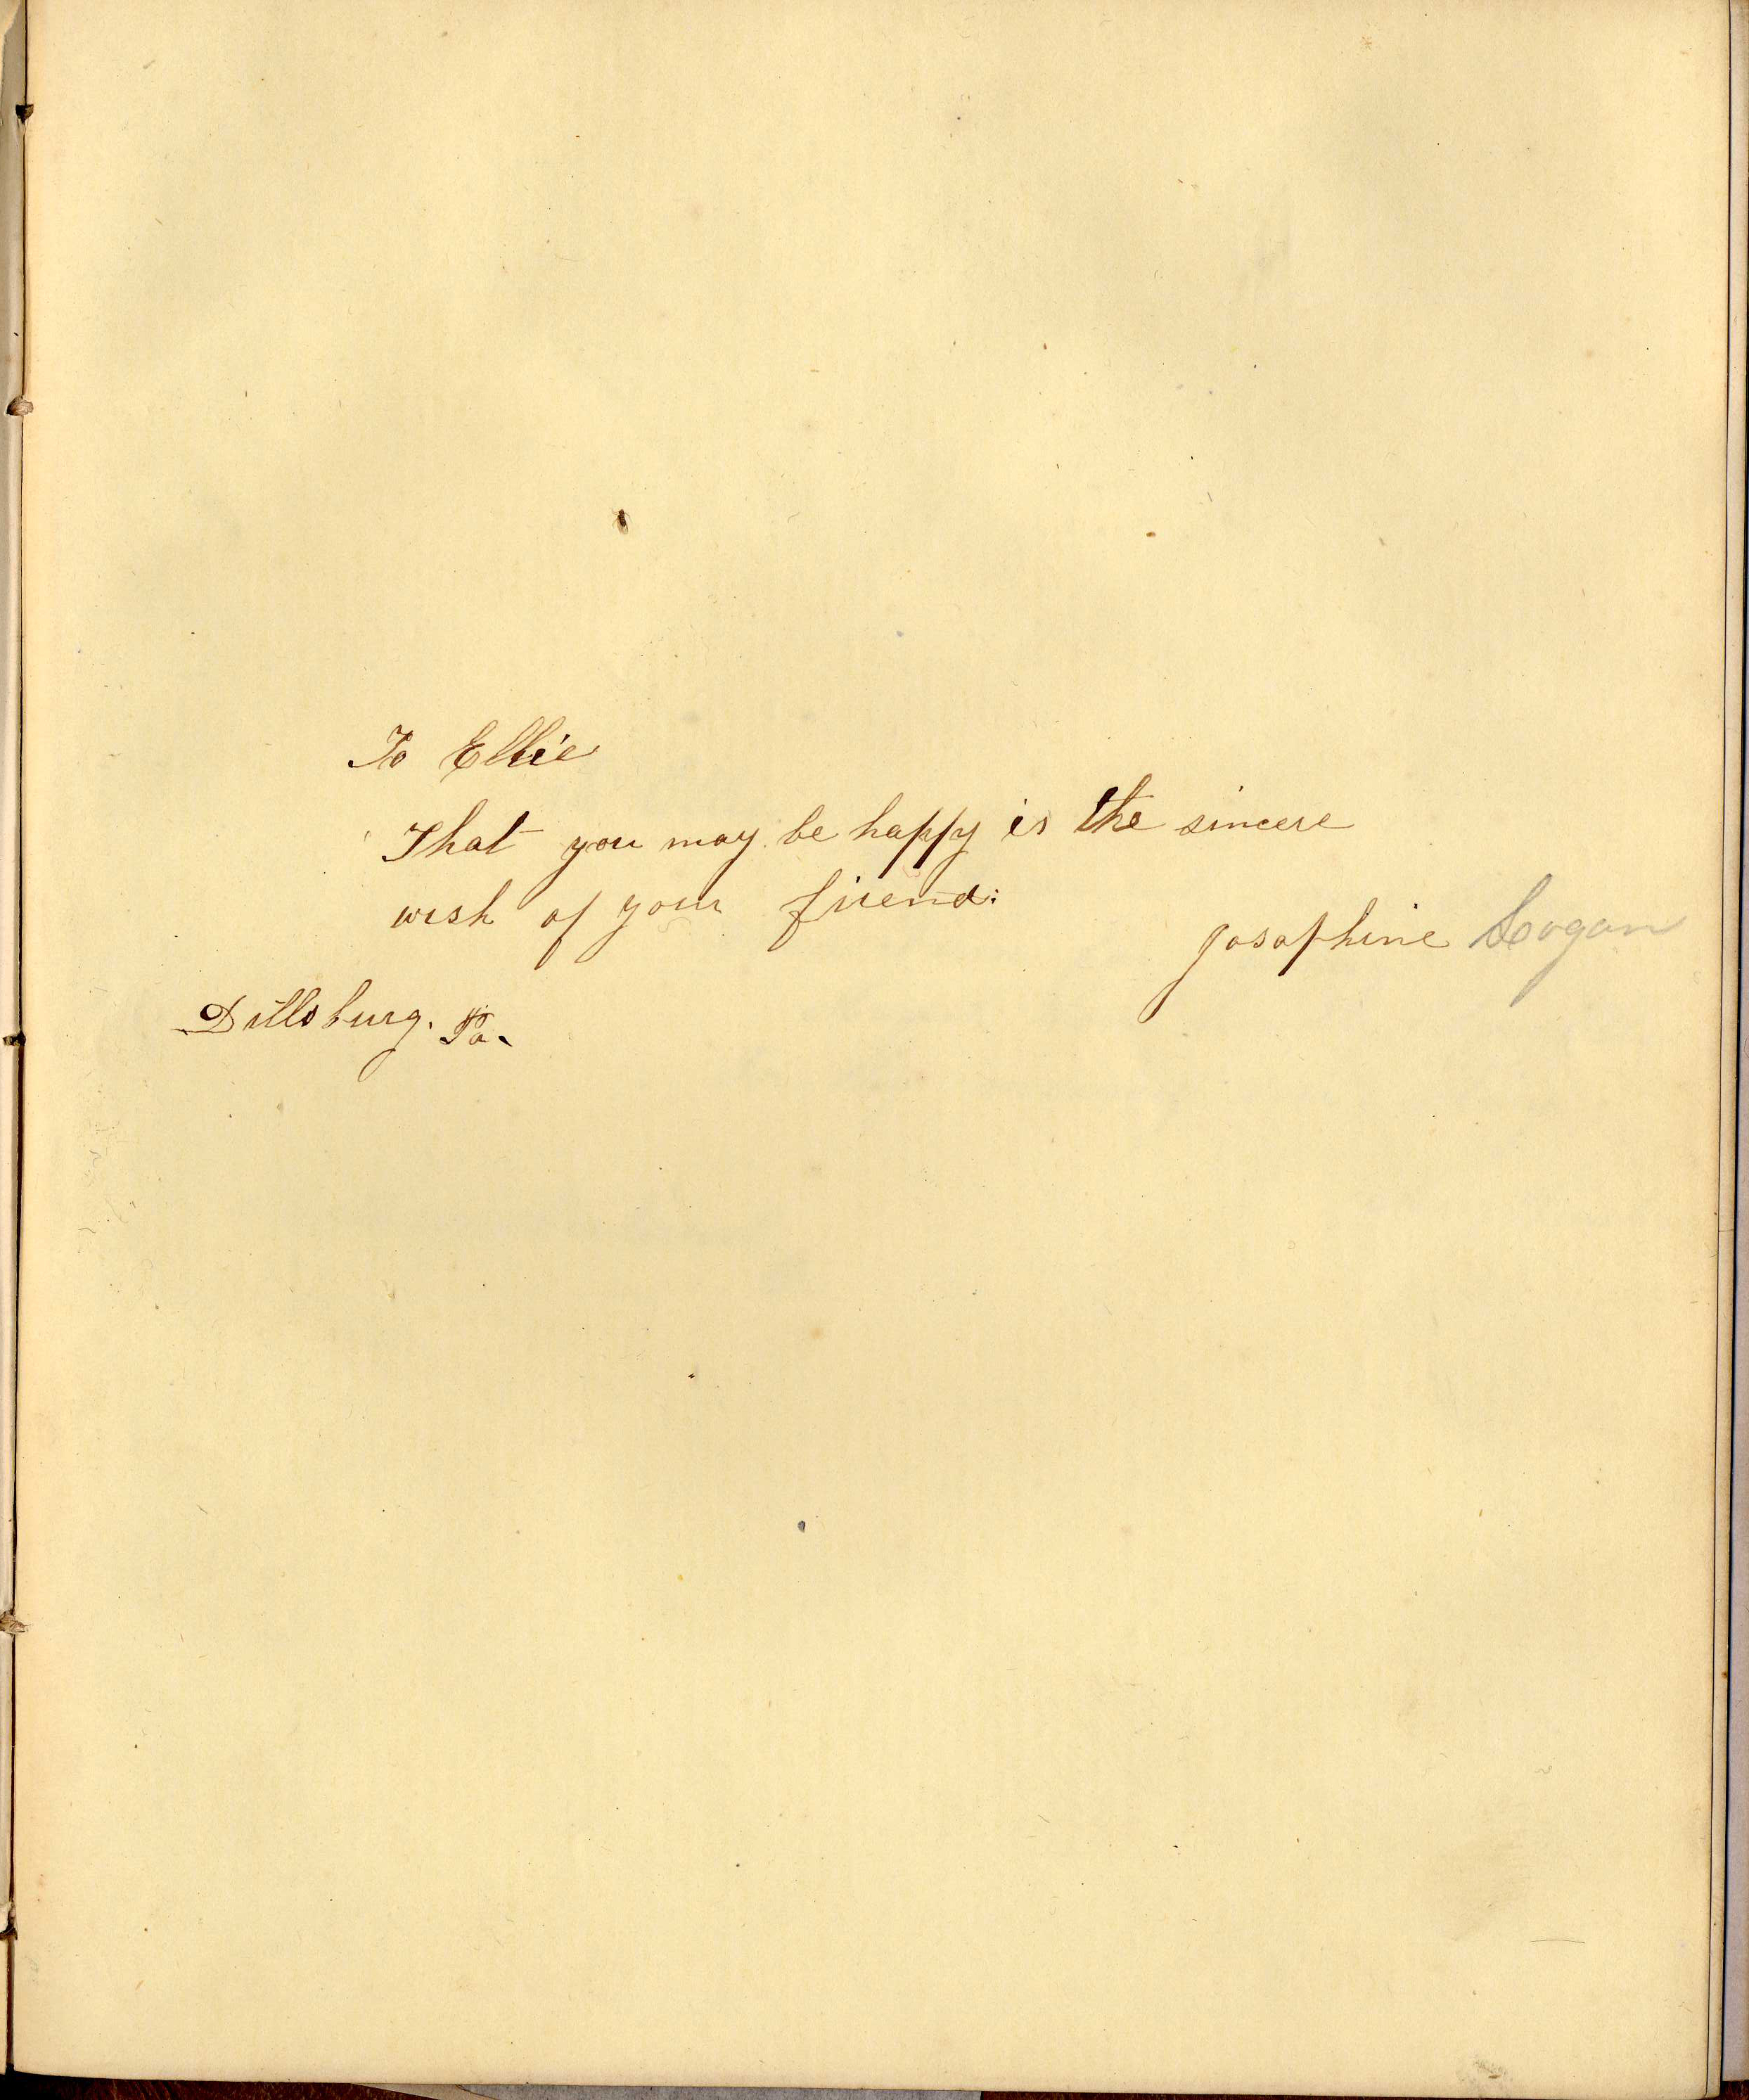 To Ellie
That you may be happy is the sincere
wish of your friend:
Josephine Logan
Dillsburg. Pa.